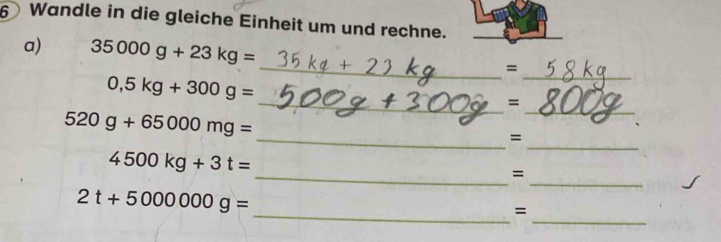 6 Wandle in die gleiche Einheit um und rechne.
a) 35 000 g + 23 kg = 35 kg + 23 kg = 58 kg
0,5 kg + 300 g = 500g + 300g = 800g
520 g + 65 000 mg = =
4 500 kg + 3 t = =
2 t + 5 000 000 g = =